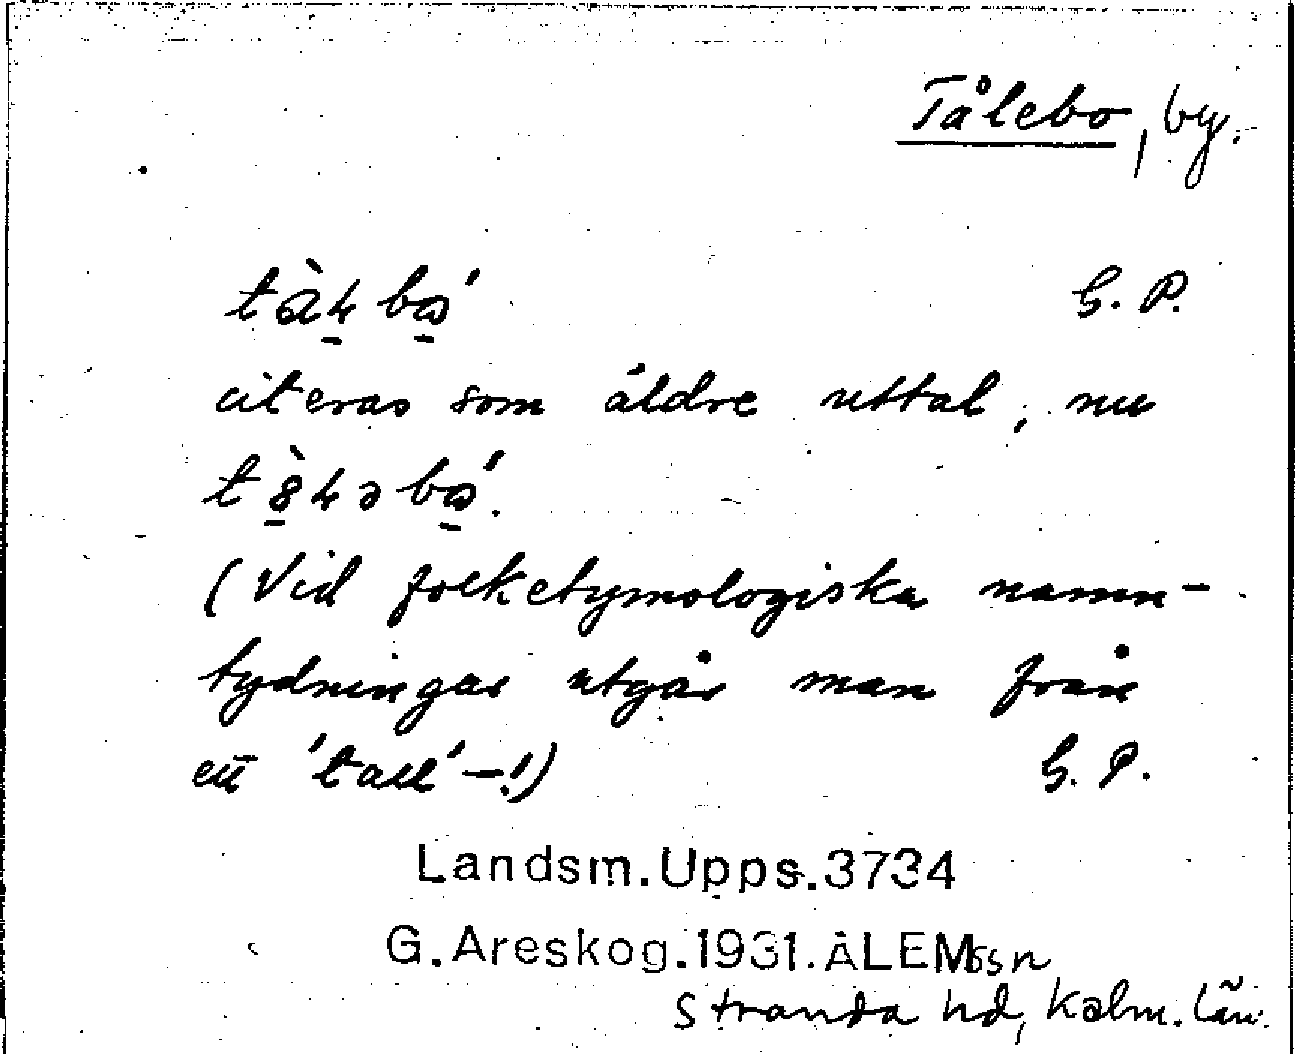 Tålebo, by.
tàɫ bω´ G. P.
citeras som äldre uttal, nu
t8̀ɫə bω´.
(Vid folketymologiska namn-
tydningar utgår man från
ett 'tall'-!) G. P.
Landsm.Upps.3734
G.Areskog.1931.ÅLEM ssn
Stranda hd, Kalm. län.